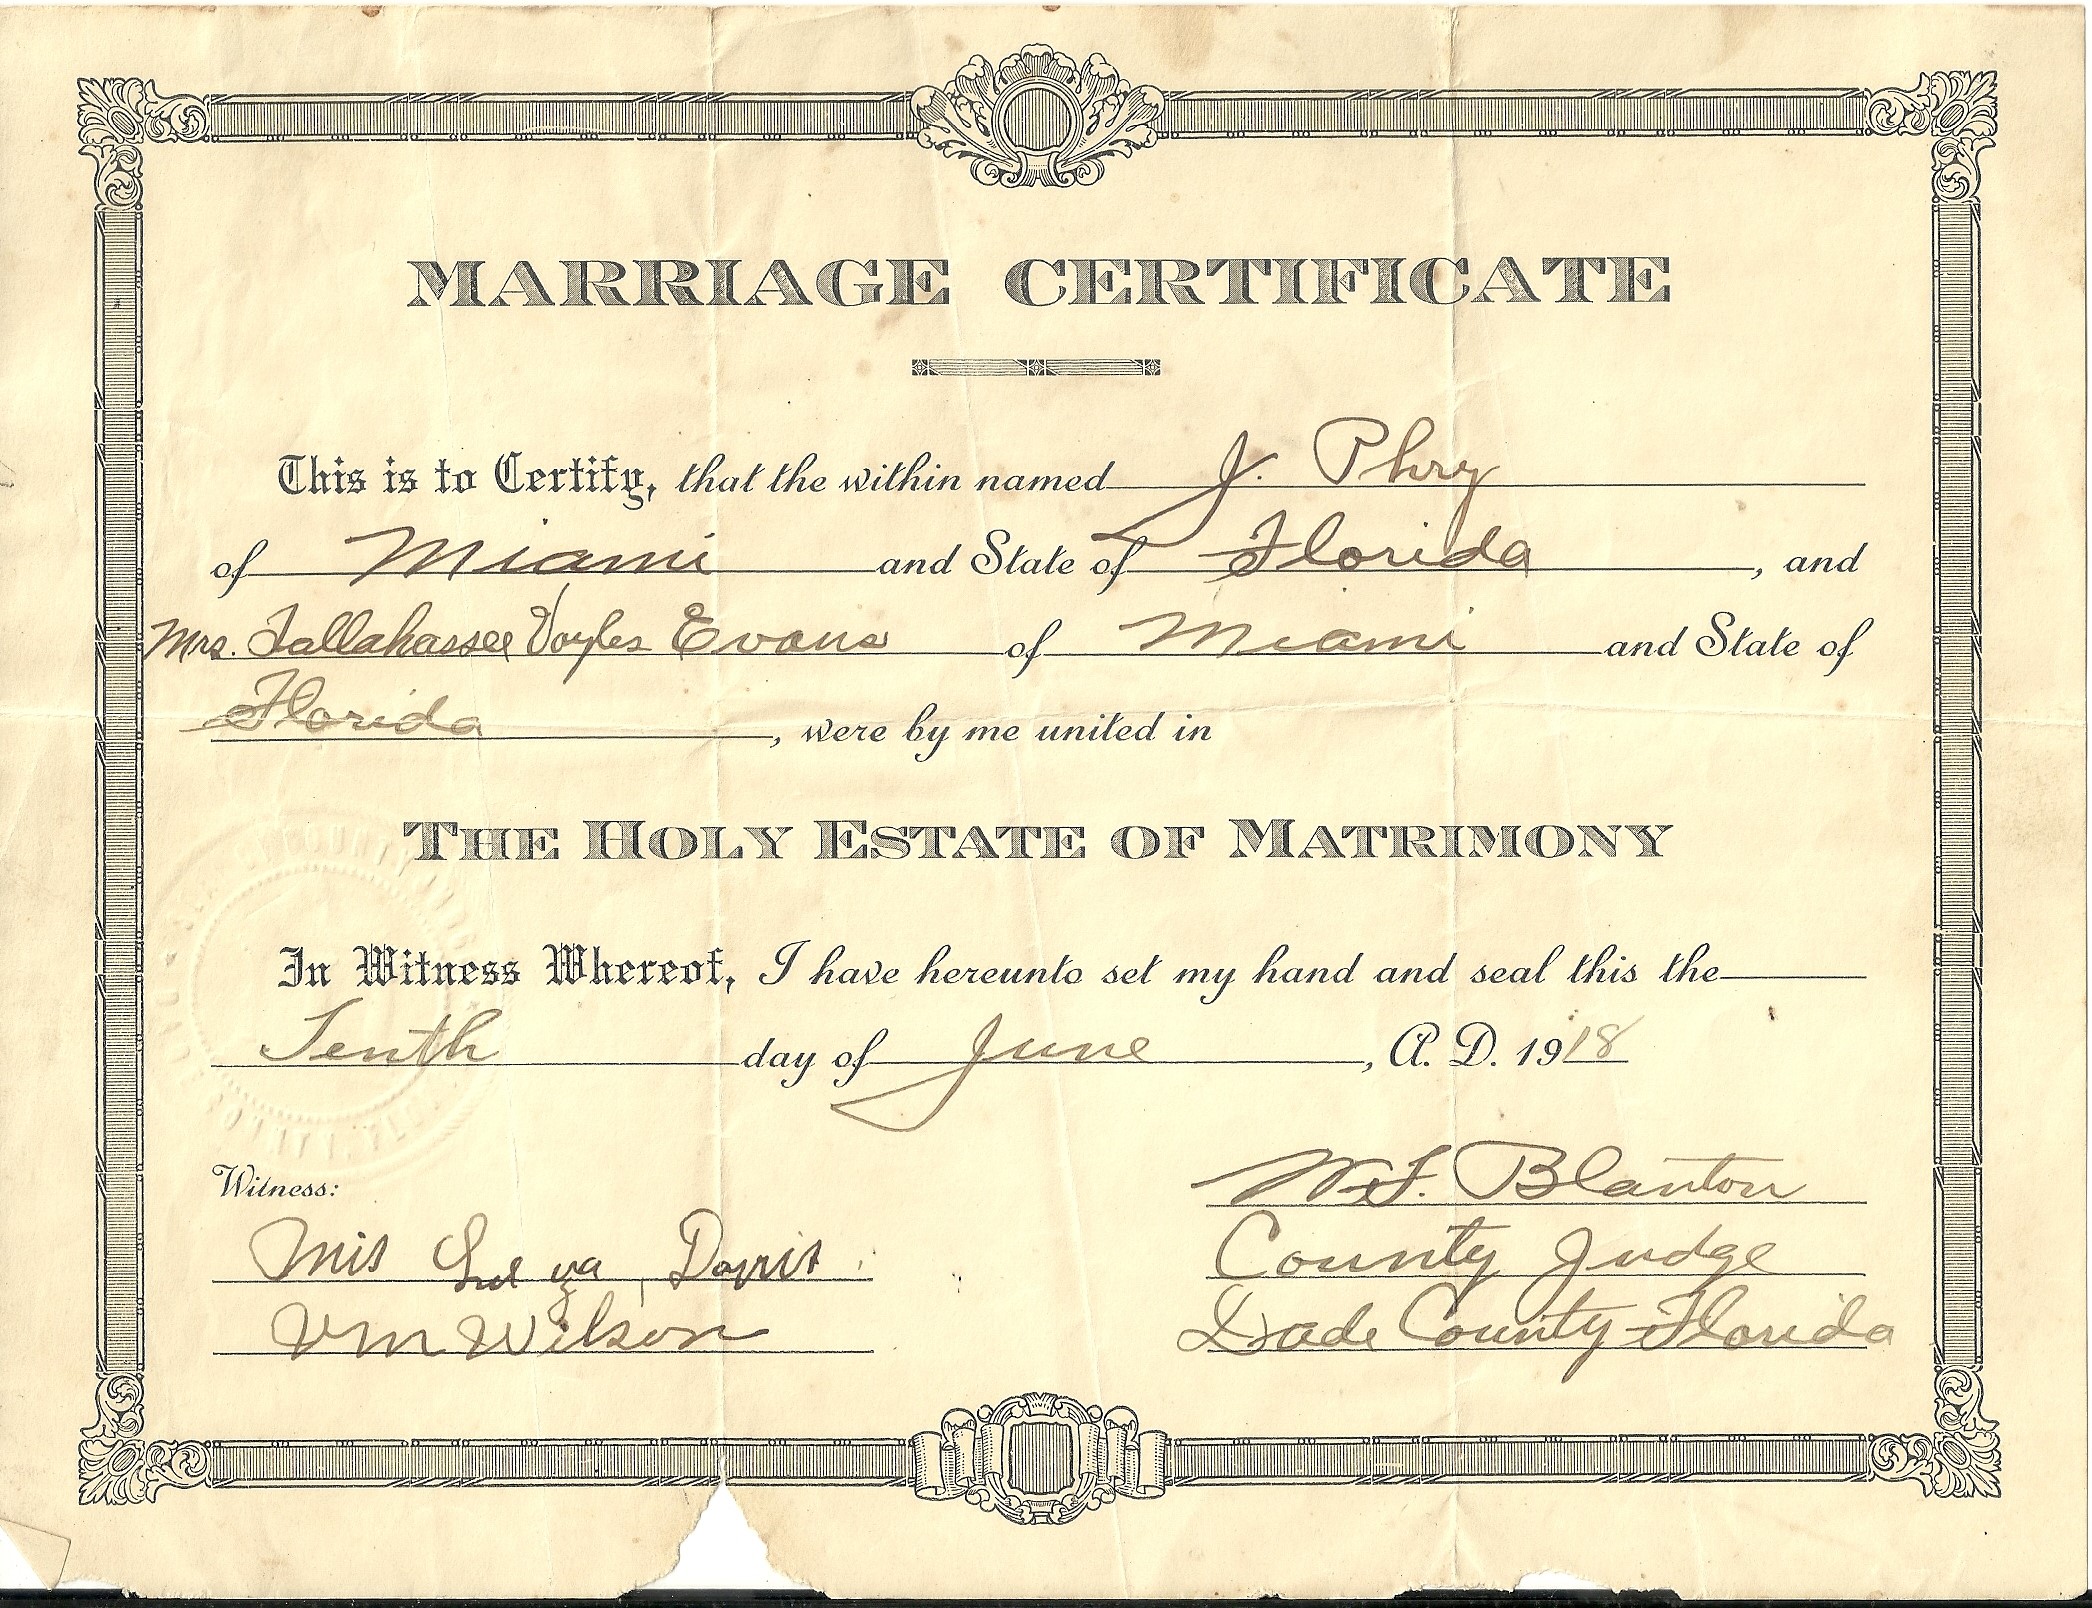 MARRIAGE CERTIFICATE
This is to Certify, that the within named J. Phry
of Miami and State of Florida, and
Mrs. Tallahassee Voyles Evans of Miami and State of
Florida, were by me united in
THE HOLY ESTATE OF MATRIMONY
In Witness Whereof, I have hereunto set my hand and seal this the
Tenth day of June, A. D. 1918
Witness:
W. F. Blanton
County Judge
Dade County Florida
Wm Wilson